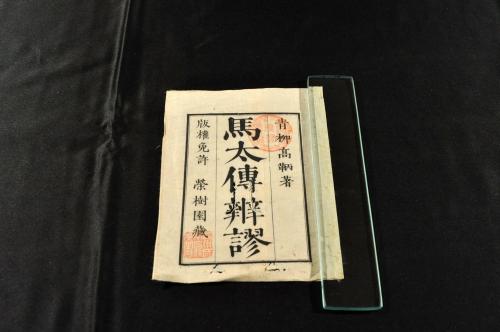 青柳高鞆著
馬太傳辨謬
版權免許 榮樹園藏